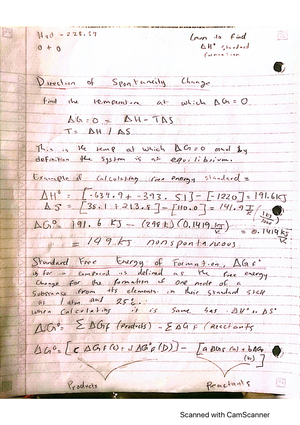 H2O - 228.59
0 + 0
Learn to find
ΔH° standard
formation
Direction of Spontaneity Change
find the temperature at which ΔG=0.
ΔG = 0 = ΔH - TΔS
T = ΔH / ΔS
This is the temp at which ΔG=0 and by
definition the system is at equilibrium.
Example of calculating free energy standard =
ΔH° = [-634.9 + -393.51] - [-1220] = 191.6 kJ
ΔS = [38.1 + 213.8] - [110.0] = 141.9 J/K
ΔG° = 191.6 kJ - (298K)(0.1419 kJ)
= 0.1419 kJ
= 149 kJ nonspontaneous
Standard Free Energy of Formation, ΔGf°
is for compound is defined as the free energy
change for the formation of one mole of a
substance from its elements in their standard
as 1 atm and 25°C.
When calculating it is same as ΔH° + ΔS°
ΔG° = ΣΔGf (products) - ΣΔGf (reactants
ΔG° = [c ΔGf (c) + d ΔGf (D)] - [a ΔGf (a) + b ΔGf (b)]
Products Reactants
Scanned with CamScanner